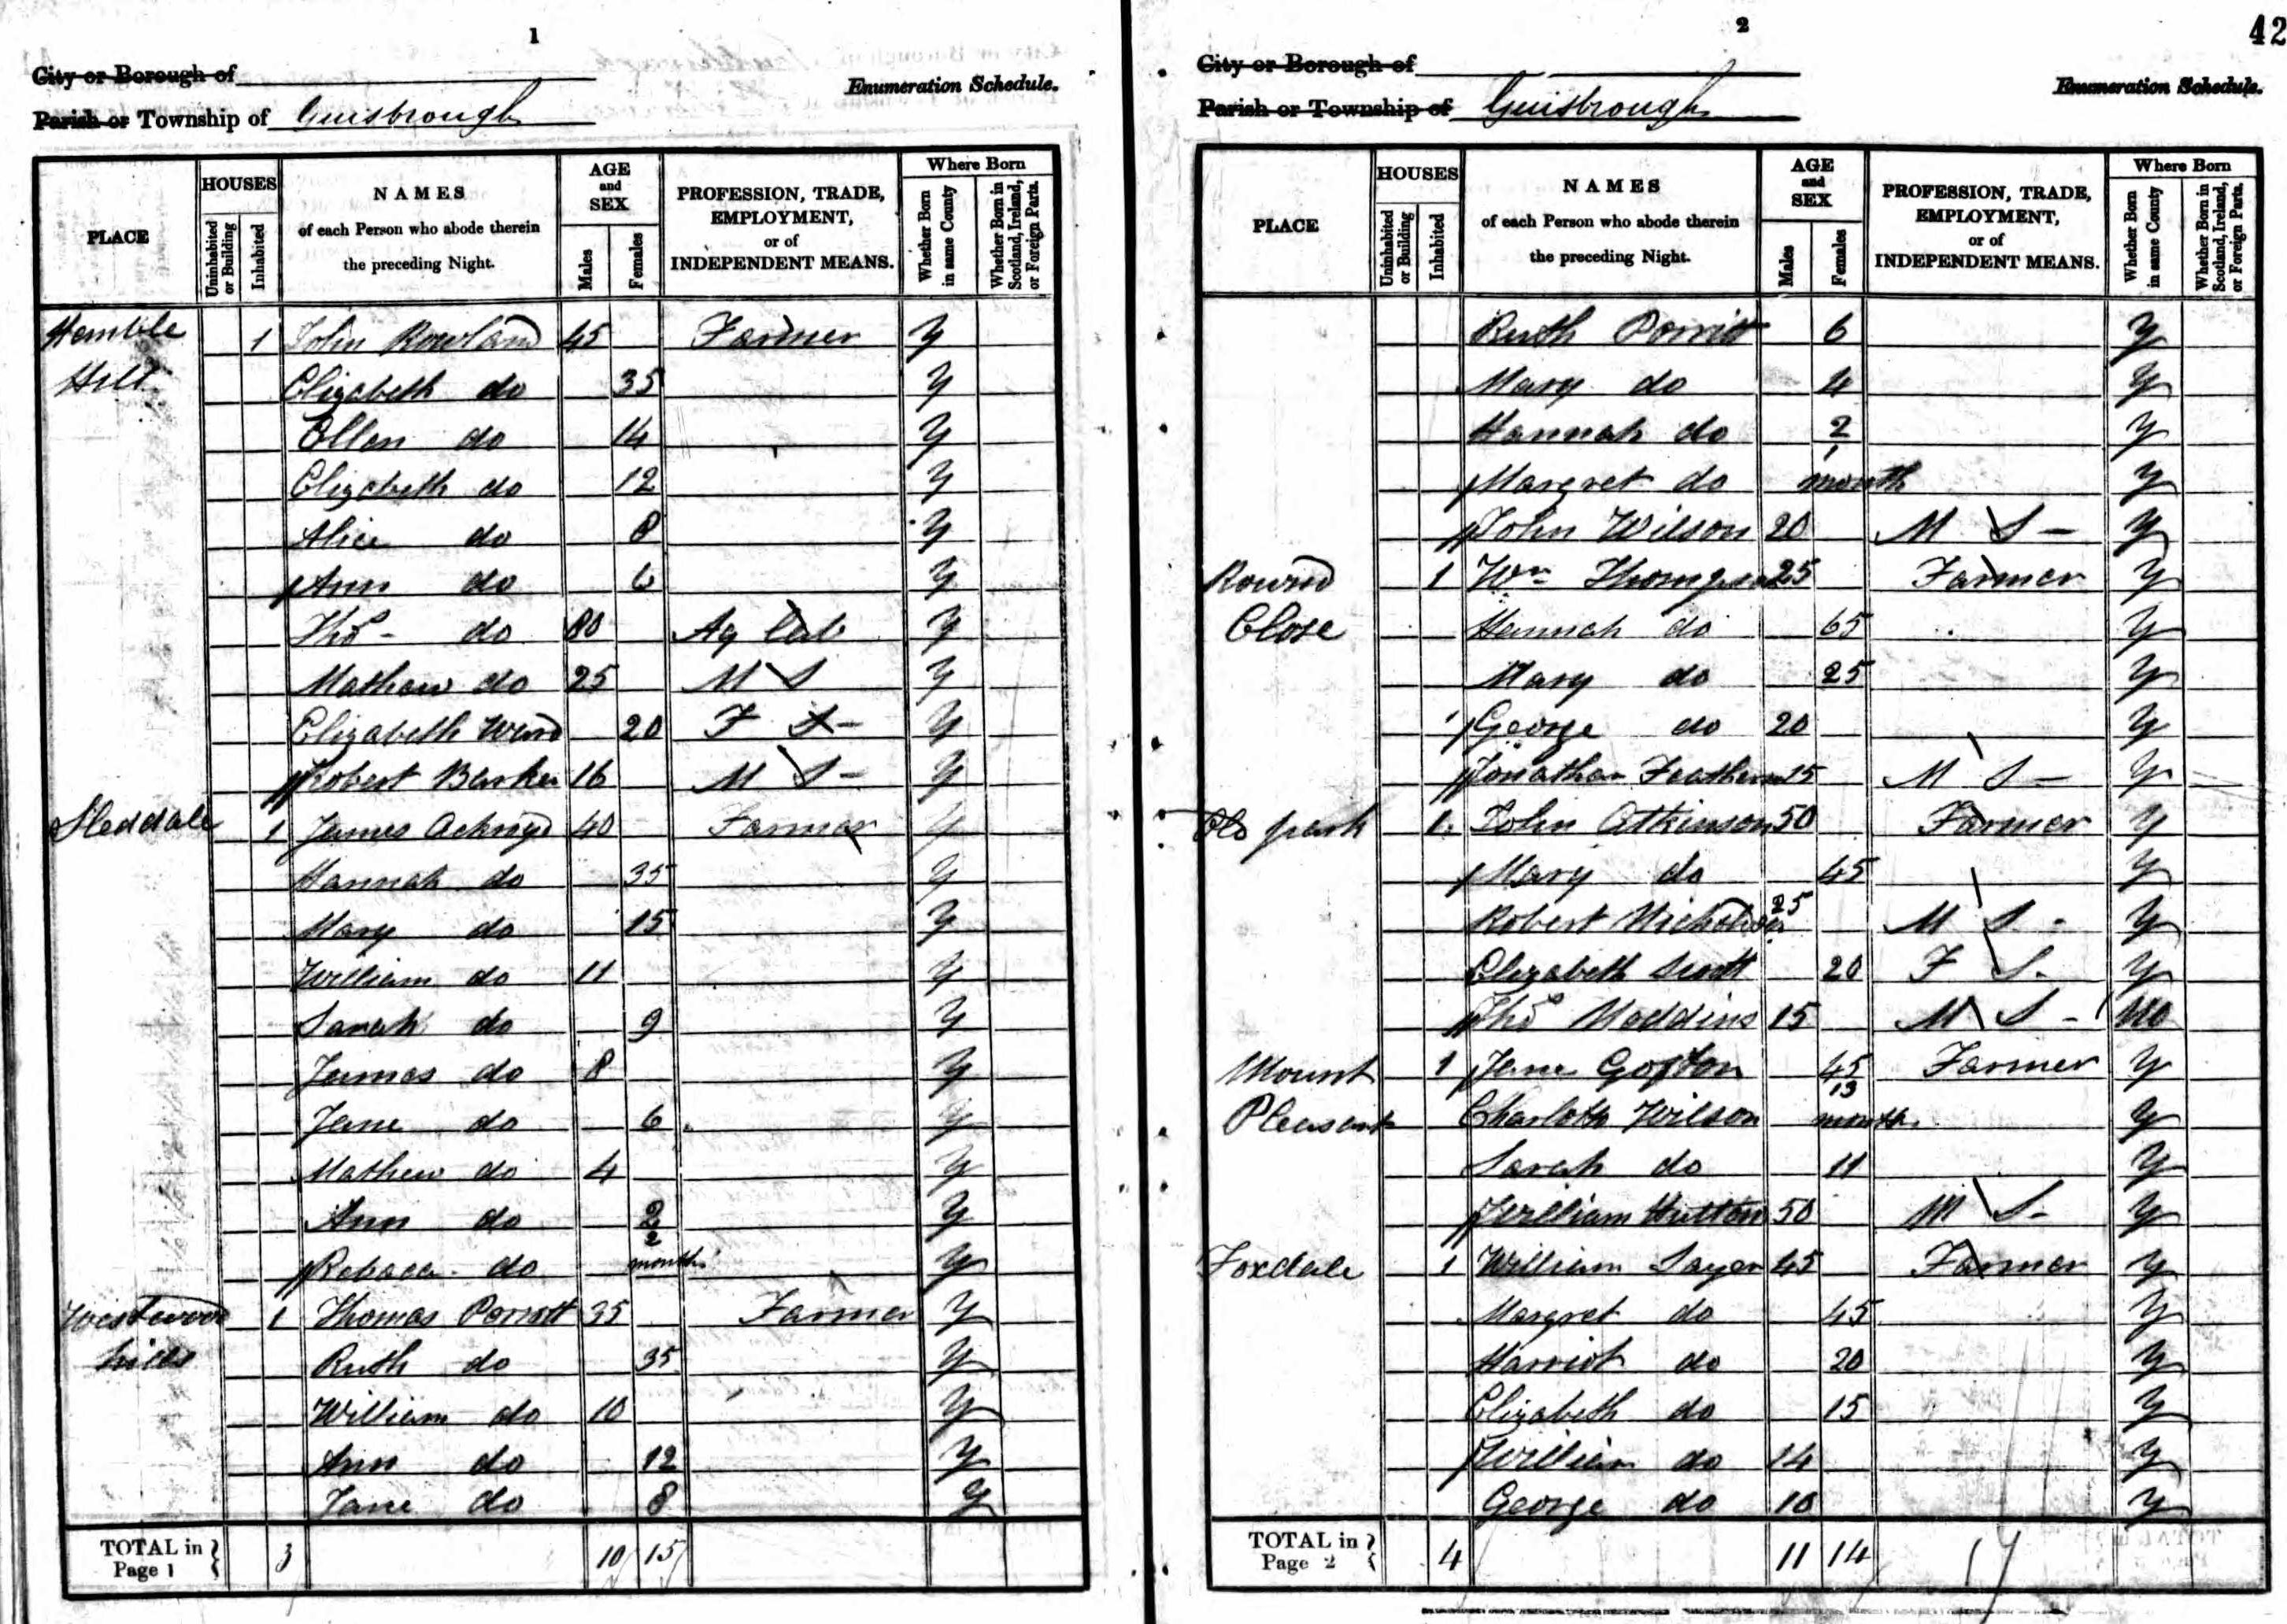 1
City or Borough of
Enumeration Schedule.
Parish or Township of Guisbrough
PLACE
HOUSES
Uninhabited or Building
Inhabited
NAMES
of each Person who abode therein
the preceding Night.
AGE
and
SEX
Males
Females
PROFESSION, TRADE,
EMPLOYMENT,
or of
INDEPENDENT MEANS.
Where Born
Whether Born in same County
Whether Born in Scotland, Ireland, or Foreign Parts.
Hemble 1 John Rowland 45 Farmer y
Hill Elizabeth do 35 y
Ellen do 14 y
Elizabeth do 12 y
Alice do 8 y
Ann do 6 y
Thos do 80 Ag Lab y
Mathew do 25 M S y
Elizabeth 20 F S y
Robert Barker 16 M S y
Sleddale 1 James Ackroyd 40 Farmer y
Hannah do 35 y
Mary do 15 y
William do 11 y
Sarah do 9 y
James do 8 y
Jane do 6 y
Mathew do 4 y
Ann do 2 y
Rebaca do 2 months y
Westwood 1 Thomas Porritt 35 Farmer y
hills Ruth do 35 y
William do 10 y
Ann do 12 y
Jane do 8 y
TOTAL in Page 1 3 10 15
2
42
City or Borough of
Enumeration Schedule.
Parish or Township of Guisbrough
PLACE
HOUSES
Uninhabited or Building
Inhabited
NAMES
of each Person who abode therein
the preceding Night.
AGE
and
SEX
Males
Females
PROFESSION, TRADE,
EMPLOYMENT,
or of
INDEPENDENT MEANS.
Where Born
Whether Born in same County
Whether Born in Scotland, Ireland, or Foreign Parts.
Ruth Porritt 6 y
Mary do 4 y
Hannah do 2 y
Margret do 1 month y
John Wilson 20 M S y
Round 1 Wm Thompson 25 Farmer y
Close Hannah do 65 y
Mary do 25 y
George do 20 y
Jonathan 15 M S y
Old park 1 John Atkinson 50 Farmer y
Mary do 45 y
Robert Nicholson 25 M S y
Elizabeth Scott 20 F S y
Thos 15 M S No
Mount 1 Jane Gofton 45 Farmer y
Pleasant Charlotte Wilson 13 months y
Sarah do 11 y
William Hutton 50 M S y
Foxdale 1 William Sayer 45 Farmer y
Margret do 45 y
Harriot do 20 y
Elizabeth do 15 y
William do 14 y
George do 10 y
TOTAL in Page 2 4 11 14